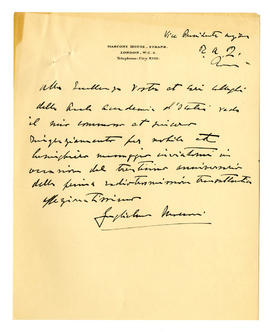 Vice Presidente
MARCONI HOUSE, STRAND,
LONDON, W.C.2.
Telephone: City 8710.
Alla Eccellenza Vostra ed ai Colleghi
della Reale Accademia d'Italia vada
il mio commosso et sincero
ringraziamento per nobile et
lusinghiero messaggio inviatomi in
occasione del trentesimo anniversario
della prima radiotrasmissione transatlantica
Guglielmo Marconi